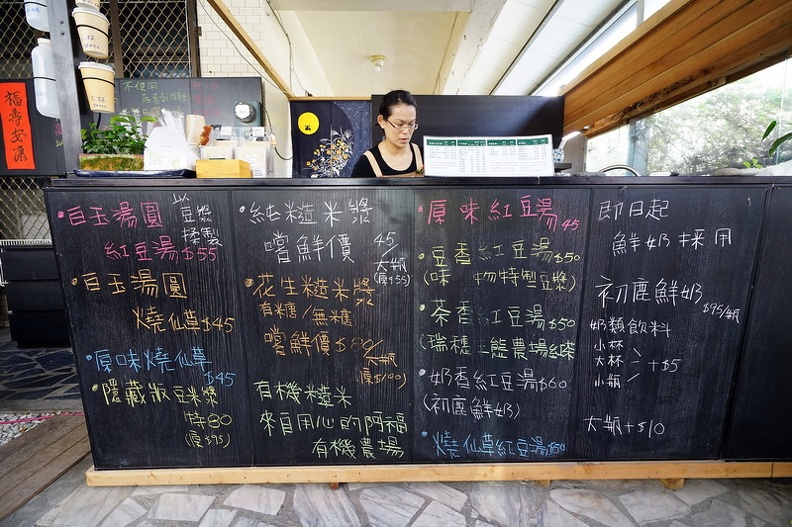 福壽安康
不使用
白玉湯圓 以豆漿揉製
紅豆湯$55
白玉湯圓
燒仙草$45
原味燒仙草
$45
隱藏版豆米漿
特80
(原$95)
純糙米漿
嚐鮮價 45/大瓶
(原$55)
花生糙米漿
有糖/無糖
嚐鮮價$80/大瓶
(原$100)
有機糙米
來自用心的阿福
有機農場
原味紅豆湯45
豆香紅豆湯$50
(味 物特製豆漿)
茶香紅豆湯$50
(瑞穗生態農場紅茶
奶香紅豆湯$60
(初鹿鮮奶)
燒仙草紅豆湯$50
即日起
鮮奶採用
初鹿鮮奶
$95/瓶
奶類飲料
小杯
大杯 +$5
小瓶
大瓶+$10